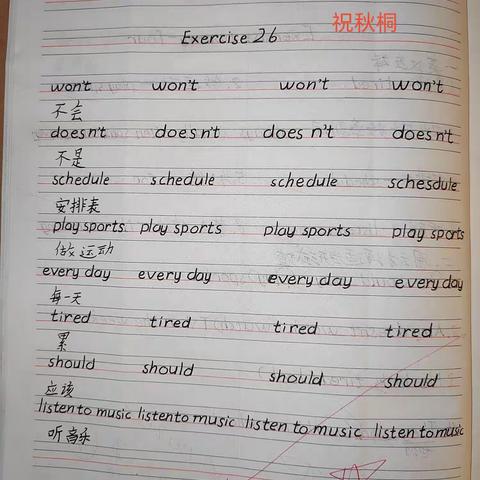 祝秋桐
Exercise 26
won't won't won't won't
不会
doesn't doesn't doesn't doesn't
不是
schedule schedule schedule schesdule
安排表
play sports play sports play sports play sports
做运动
every day every day every day every day
每一天
tired tired tired tired
累
should should should should
应该
listen to music listen to music listen to music listen to music
听音乐